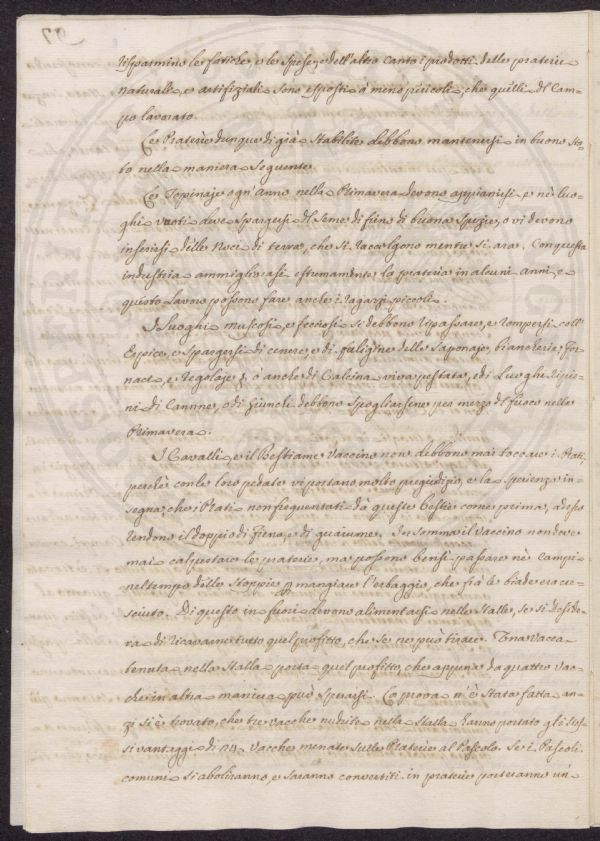 risparmino le fatiche, e le spese, e dell'altro canto i prodotti delle praterie
naturali, e artifiziali sono esposti à meno pericoli, che quelli del Cam=
po lavorato.
Le Praterie dunque di già stabilite debbono mantenersi in buono sta=
to nella maniera seguente.
Le Topinaje ogn'anno nella Primavera devono appianarsi, e ne' luo=
ghi vuoti deve spargersi del seme di fieno di buona spezie, o vi devono
inserirsi delle Noci di terra, che si racolgono mentre si ara. Con questa
industria ammigliorasi estremamente la prateria in alcuni anni, e
questo lavoro possono fare anche i ragazzi piccoli.
I Luoghi muscosi, e fecciosi si debbono ripassare, e rompersi coll'
Erpice, e spargersi di cenere, e di fuligine delle Saponaje, biancherie, For=
naci, e Tegolaje, ò anche di Calcina viva pestata, ed i Luoghi ripie=
ni di Cannne, o di Giunchi debbono spogliarsene per mezzo del fuoco nella
Primavera.
I Cavalli, e il Bestiame Vaccino non debbono mai toccare i Prati,
perchè con le loro pedate vi portano molto pregiudizio, e la sperienza in=
segna, che i Prati non frequentati da queste bestie come prima, adesso
rendono il doppio di Fieno, e di guaiume. In somma il Vaccino non deve
mai calpestare le praterie, ma possono bensì passare nei Campi
nel tempo delle Stoppie mangiare l'erbaggio, che frà le biade era cre=
sciuto. Di questo in fuori devono alimentarsi nelle Stalle, se si deside=
ra di ricavarne tutto quel profitto, che se ne può tirare. Una Vacca
tenuta nella Stalla porta quel profitto, che appena da quattro Vac=
che in altra maniera può sperarsi. La prova n'è stata fatta an=
zi si è trovato, che tre vacche nudrite nella Stalla hanno portato gli stes=
si vantaggi di Vacche menate sulle Praterie al Pascolo. Se i Pascoli
comuni si aboliranno, e saranno convertiti in praterie porteranno un'